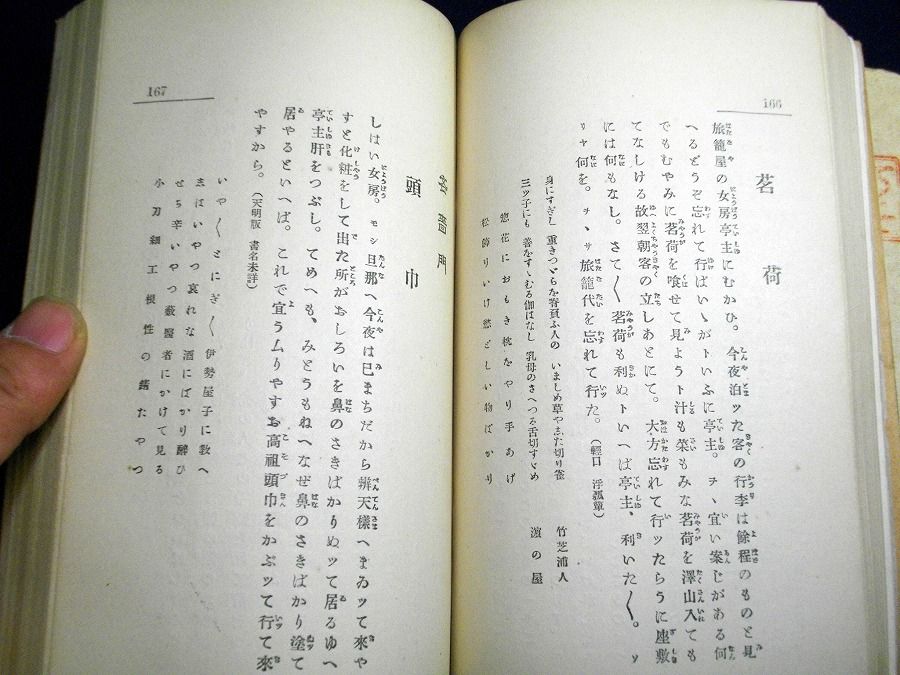 166
茗荷
旅籠屋の女房亭主にむかひ。今夜泊ッた客の行李は餘程のものと見
へるどうぞ忘れて行ばいゝがトいふに亭主。ヲヽ宜い案じがある何
でもむやみに茗荷を喰せて見ようト汁も菜もみな茗荷を澤山入ても
てなしける故翌朝客の立しあとにて。大方忘れて行ッたらうに座敷
には何もなし。さて〳〵茗荷も利ぬトいへば亭主、利いた〳〵。ソ
リャ何を。ヲヽサ旅籠代を忘れて行た。(輕口 浮瓢簞)
身にすぎし 重きつゞらを脊負ふ人の いましめ草や志た切り雀 竹芝浦人
三ッ子にも 善をすゝむる伽はなし 乳母のさへつる舌切すゞめ 濱の屋
惣花におもき枕をやり手あげ
松飾りいけ慾どしい物ばかり
167
頭巾
しはい女房。モシ旦那へ今夜は巳まちだから辨天樣へまゐッて來や
すと化粧をして出た所がおしろいを鼻のさきばかりぬッて居るゆへ
亭主肝をつぶし。てめへも、みとうもねへなぜ鼻のさきばかり塗て
居やるといへば。これで宜うムりやすお高祖頭巾をかぶッて行て來
やすから。(天明版 書名未詳)
いや〳〵とにぎ〳〵伊勢屋子に敎へ
志はいやつ哀れな酒にばかり醉ひ
せち辛いやつ藪醫者にかけて見る
小刀細工根性の錆たやつ